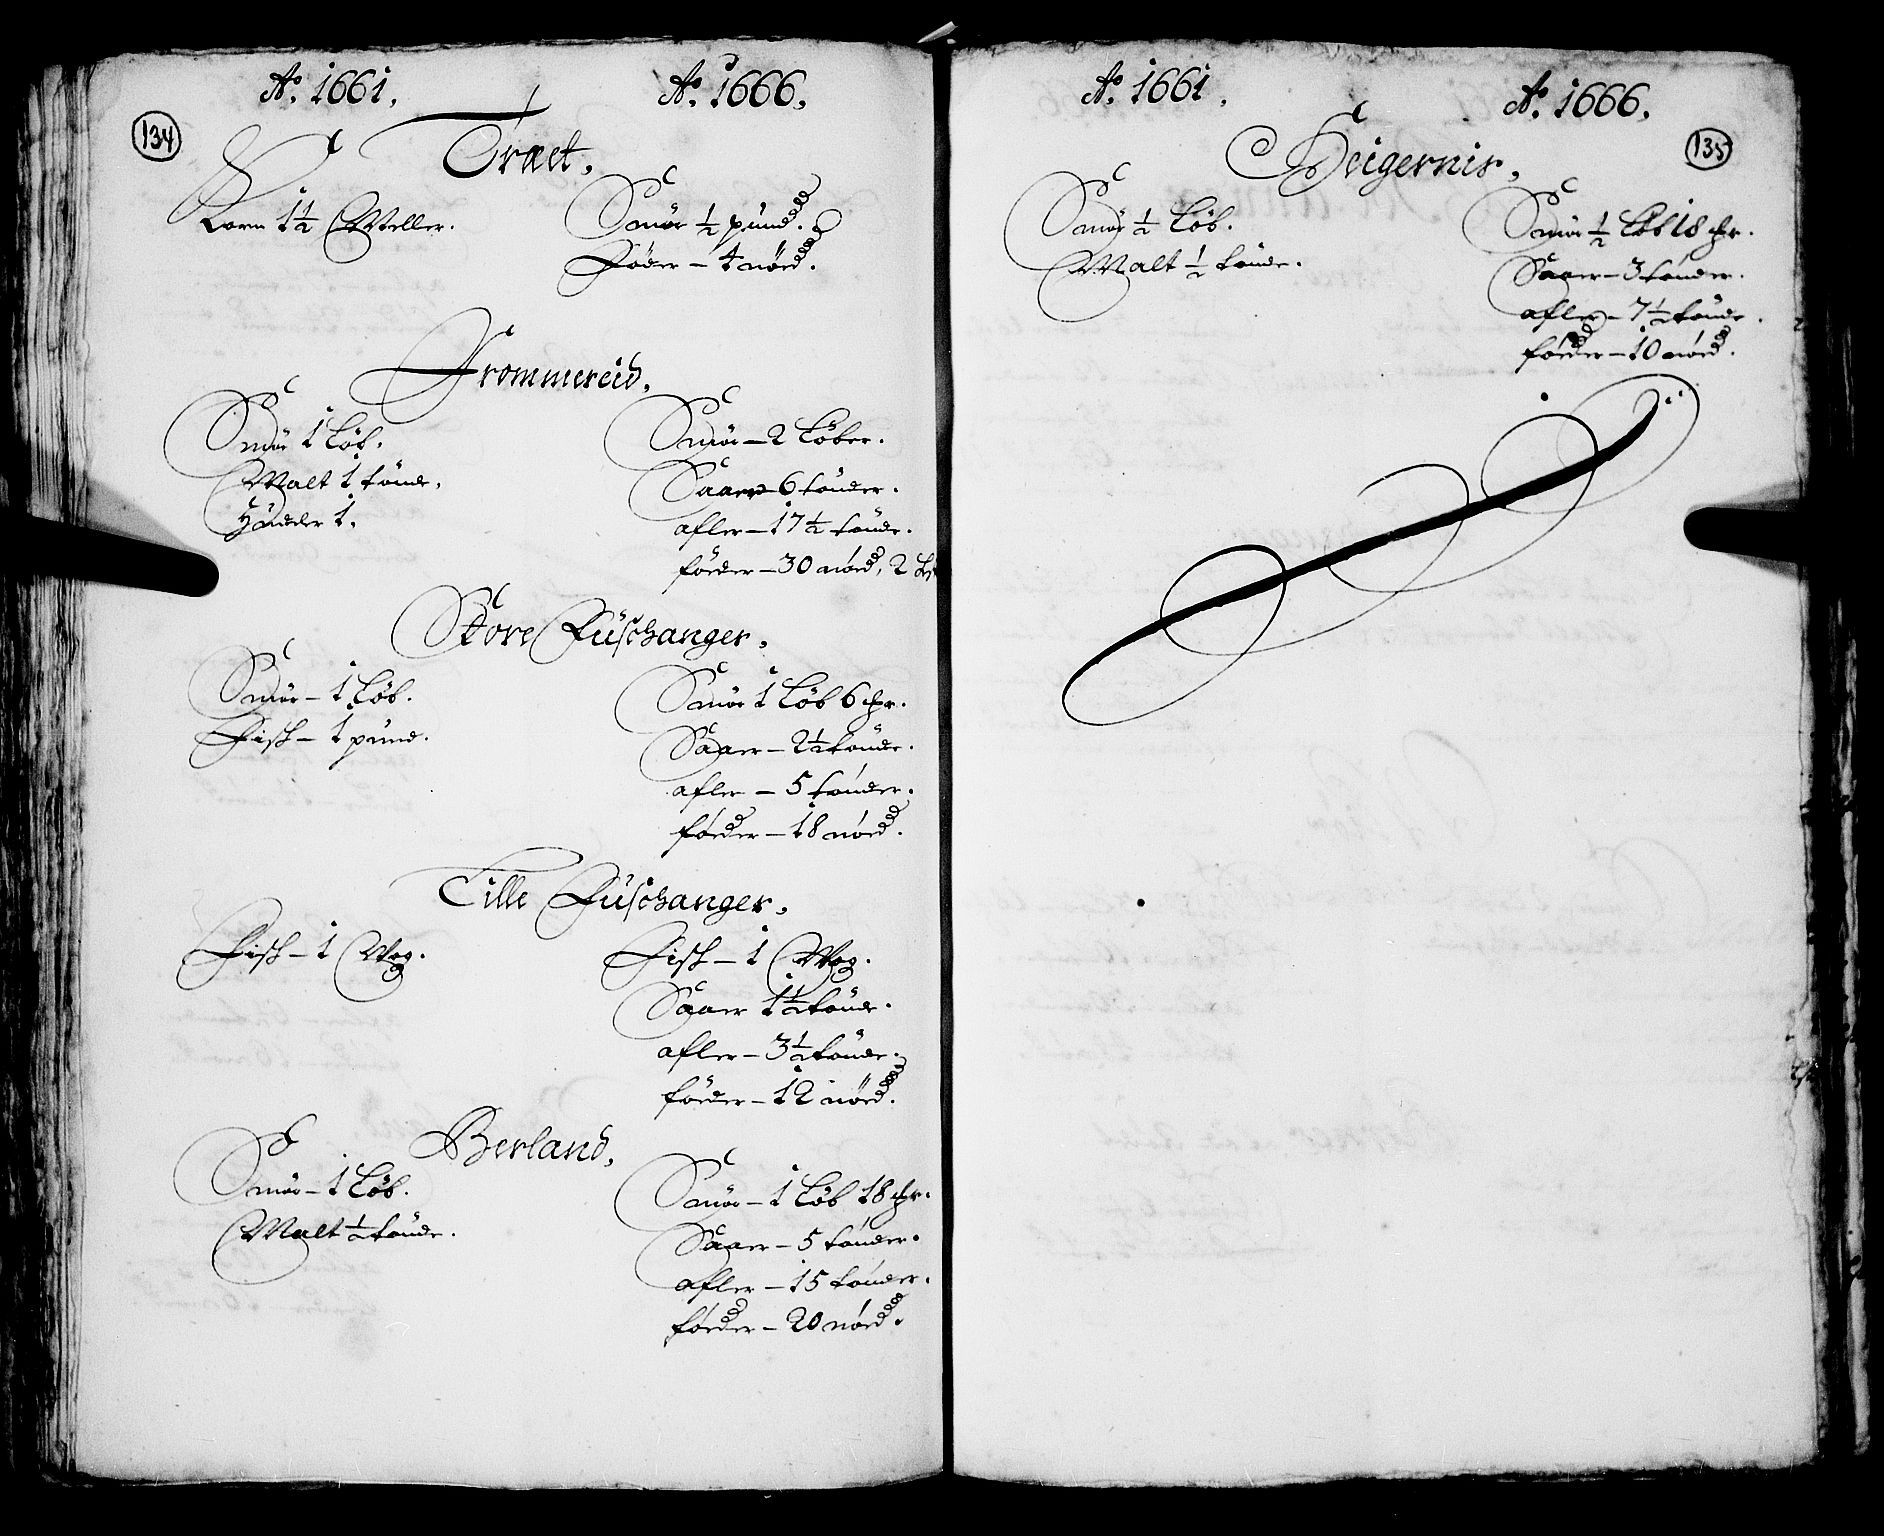 134
Ao. 1661.
Ao. 1666.
Træet.
Korn 1½ Meller.
Smör ½ pund.
Föder – 4 nörd.
Frommereid.
Smör 1 Löb.
Malt 1 tönde.
Huder 1.
Smör – 2 Löber.
Saaer – 6 tönder.
afler – 17½ tönde.
förder – 30 nörd, 2
Store Fuschanger.
Smör – 1 Löb.
Fisk – 1 pund.
Smör 1 Löb 6 chr.
Saaer – 2½ tönde.
afler – 5 tönder.
förder – 18 nörd.
Lille Fuschanger.
Fisk – 1 Wog.
Fisk – 1 Wog.
Saaer 1½ tönde.
afler – 3½ tönde.
förder – 12 nörd.
Berland.
Smör – 1 Löb.
Malt ½ tönde.
Smör – 1 Löb 18 chr.
Saaer – 5 tönder.
afler – 15 tönder.
förder – 20 nörd.
135
Ao. 1661.
Ao. 1666.
Heigernis.
Smör ½ Löb.
Malt ½ tönde.
Smör ½ Löb 18 chr.
Saaer – 3 tönder.
afler – 7½ tönde.
förder – 10 nörd.